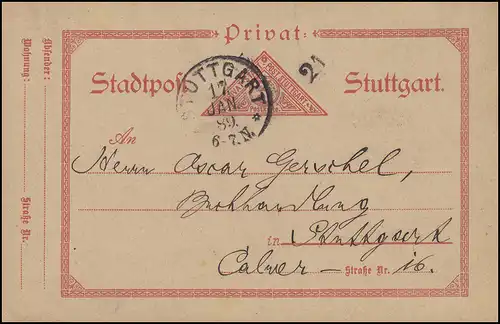 Privat-
Stadtpost Stuttgart.
STUTTGART
17
JAN.
89.
6-7.N.
21
Absender:
Wohnung:
Straße Nr.
An
Herrn Oscar Gerschel,
Buchhandlung
in Stuttgart
Calwer- Straße Nr. 16.